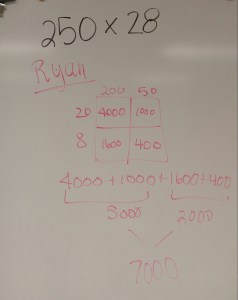 250 x 28
Ryan
200 50
20 4000 1000
8 1600 400
4000 + 1000 + 1600 + 400
5000 2000
7000